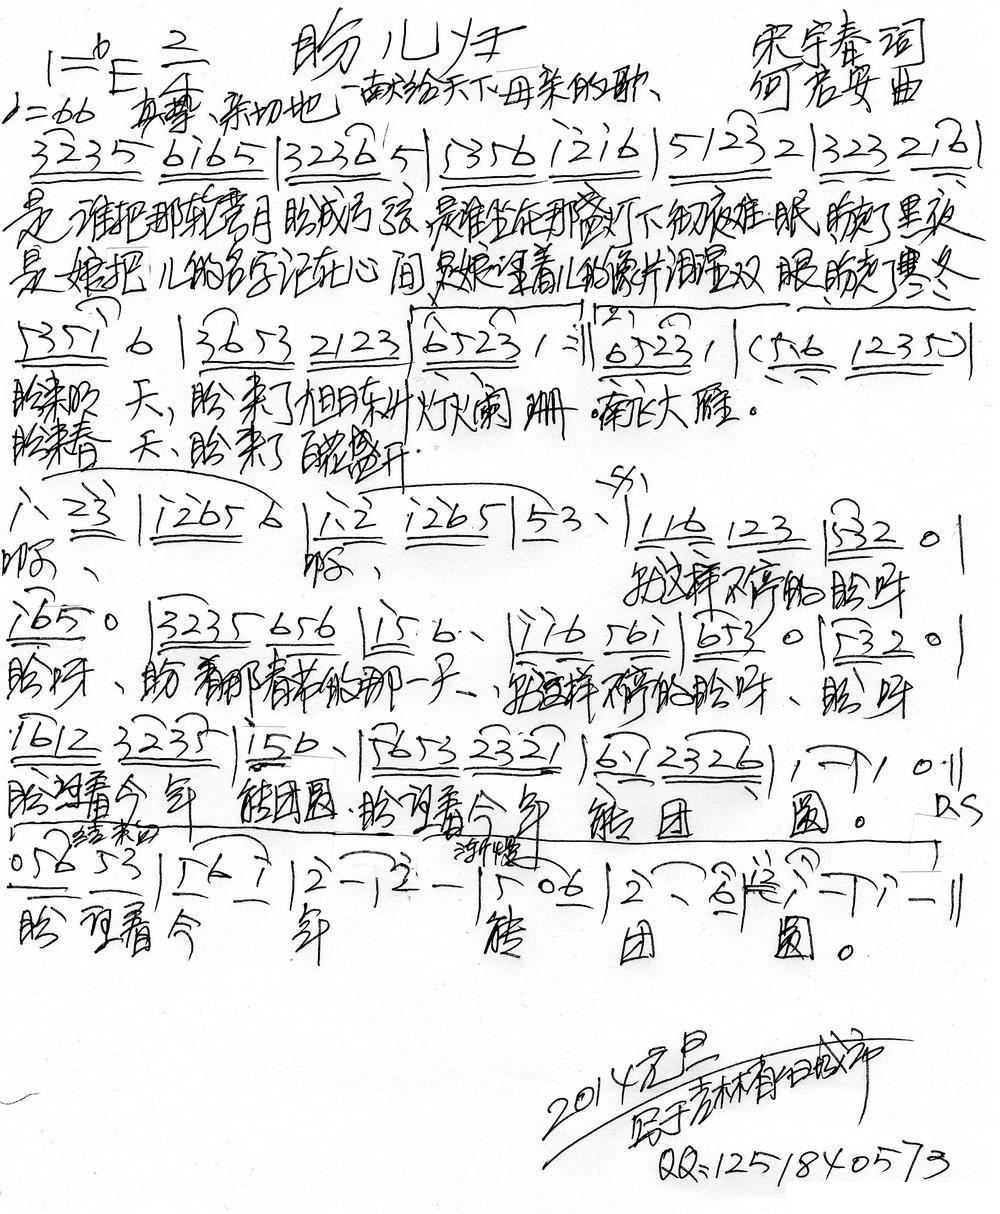 盼儿归
宋宇春 词
1=ᵇE 2/4
何君安 曲
♩=66 真挚、亲切地 —献给天下母亲的歌、
3235 6i65 | 3236 5 | 5356 i2i6 | 5123 2 | 323 216 |
是谁把那轮弯月盼成弓弦,是谁坐在那盏灯下彻夜难眠,盼走了黑夜
是娘把儿的名字记在心间 是娘望着儿的像片泪湿双眼 盼走了寒冬
535i 6 | 3653 2123 | 6523 1 :‖ 2. 6523 1 | (5.6 1235) |
盼来明天,盼来了旭日东升 灯火阑珊。南飞大雁。
盼来春天、盼来了百花盛开.
i、23 | i265 6 | i.2 i265 | 53、| 116 123 | 532 0 |
啊、 啊、 就这样不停的盼呀
i65 0 | 3235 656 | i5 6. | ii6 56i | 653 0 | 532 0 |
盼呀、盼着那春节的那一天、就这样不停的盼呀、盼呀
i612 3235 | i56、| 5653 2321 | 6.1 2326 | 1 — | 1 0 ‖
盼望着今年能团圆.盼望着今年能团圆。 D.S
结束句 渐慢
056 53 | 56 i | 2 — | 2 — | 5 06 | 2、6 | i — | i — ‖
盼望着今年能团圆。
2014元旦
写于吉林省白城市
QQ:1251840573